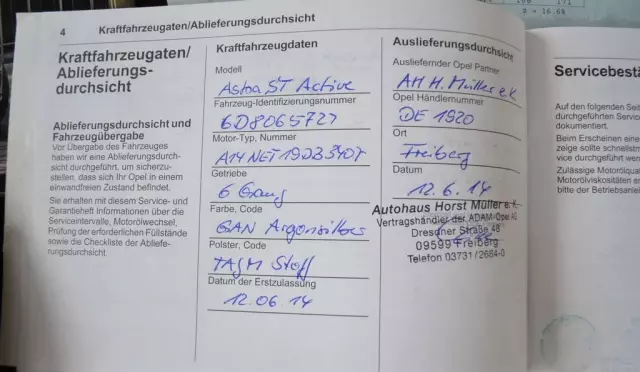 4 Kraftfahrzeugaten/Ablieferungsdurchsicht
Kraftfahrzeugaten/
Ablieferungs-
durchsicht
Ablieferungsdurchsicht und
Fahrzeugübergabe
Vor Übergabe des Fahrzeuges
haben wir eine Ablieferungsdurch-
sicht durchgeführt, um sicherzu-
stellen, dass sich Ihr Opel in einem
einwandfreien Zustand befindet.
Sie erhalten mit diesem Service- und
Garantieheft Informationen über die
Serviceintervalle, Motorölwechsel,
Prüfung der erforderlichen Füllstände
sowie die Checkliste der Abliefe-
rungsdurchsicht.
Kraftfahrzeugdaten
Modell
Astra ST Active
Fahrzeug-Identifizierungsnummer
6D8065727
Motor-Typ, Nummer
A14NET 19DB3407
Getriebe
6 Gang
Farbe, Code
GAN Argonsilber
Polster, Code
TAGM Stoff
Datum der Erstzulassung
12.06.14
Auslieferungsdurchsicht
Ausliefernder Opel Partner
AH H. Müller e.K.
Opel Händlernummer
DE 1920
Ort
Freiberg
Datum
12.6.14
Autohaus Horst Müller e.K.
Vertragshändler der ADAM-Opel AG
Dresdner Straße 48
09599 Freiberg
Telefon 03731/2684-0
Servicebestä
Auf den folgenden Seit
durchgeführten Servic
dokumentiert.
Beim Erscheinen eine
zeige sollte schnellstm
vice durchgeführt wer
Zulässige Motorölqual
Motorölviskositäten en
bitte der Betriebsanle
= 16.6%